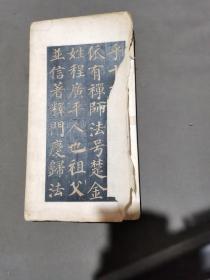 乎十
依有禪師法号楚金
姓程廣平人也祖父
並信著釋門慶歸法